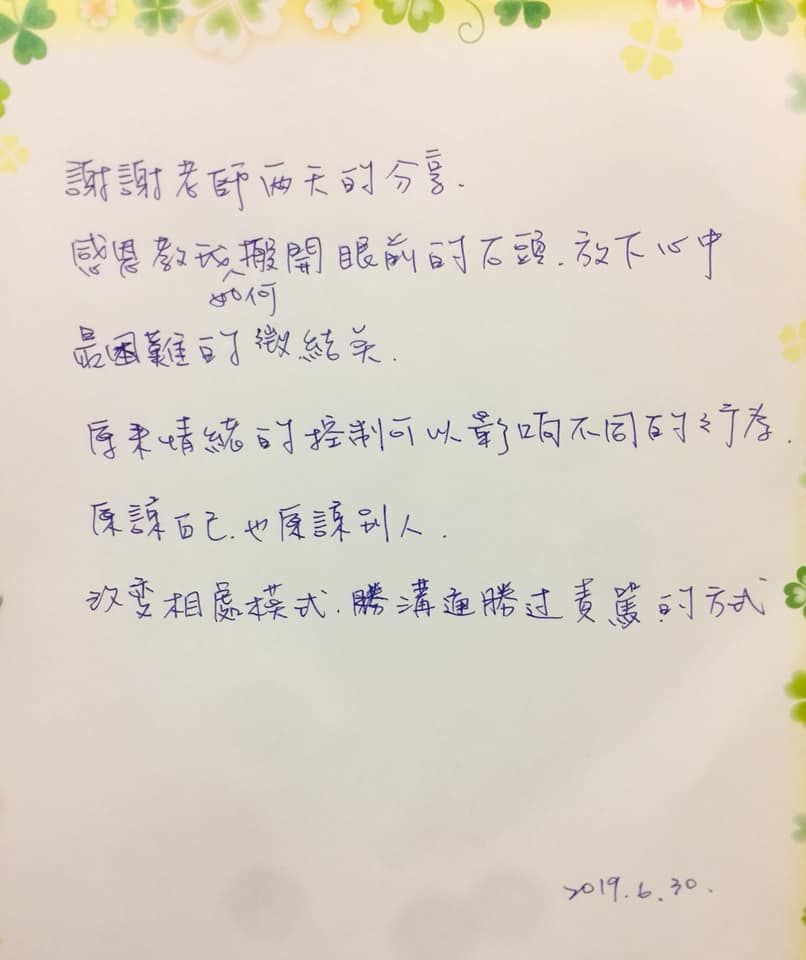 謝謝老師两天的分享.
感恩教我如何搬開眼前的石頭.放下心中
最困難的微結关.
原來情緒的控制可以影响不同的行为.
原諒自己.也原諒別人.
改变相處模式.勝溝通勝过責罵的方式
2019.6.30.